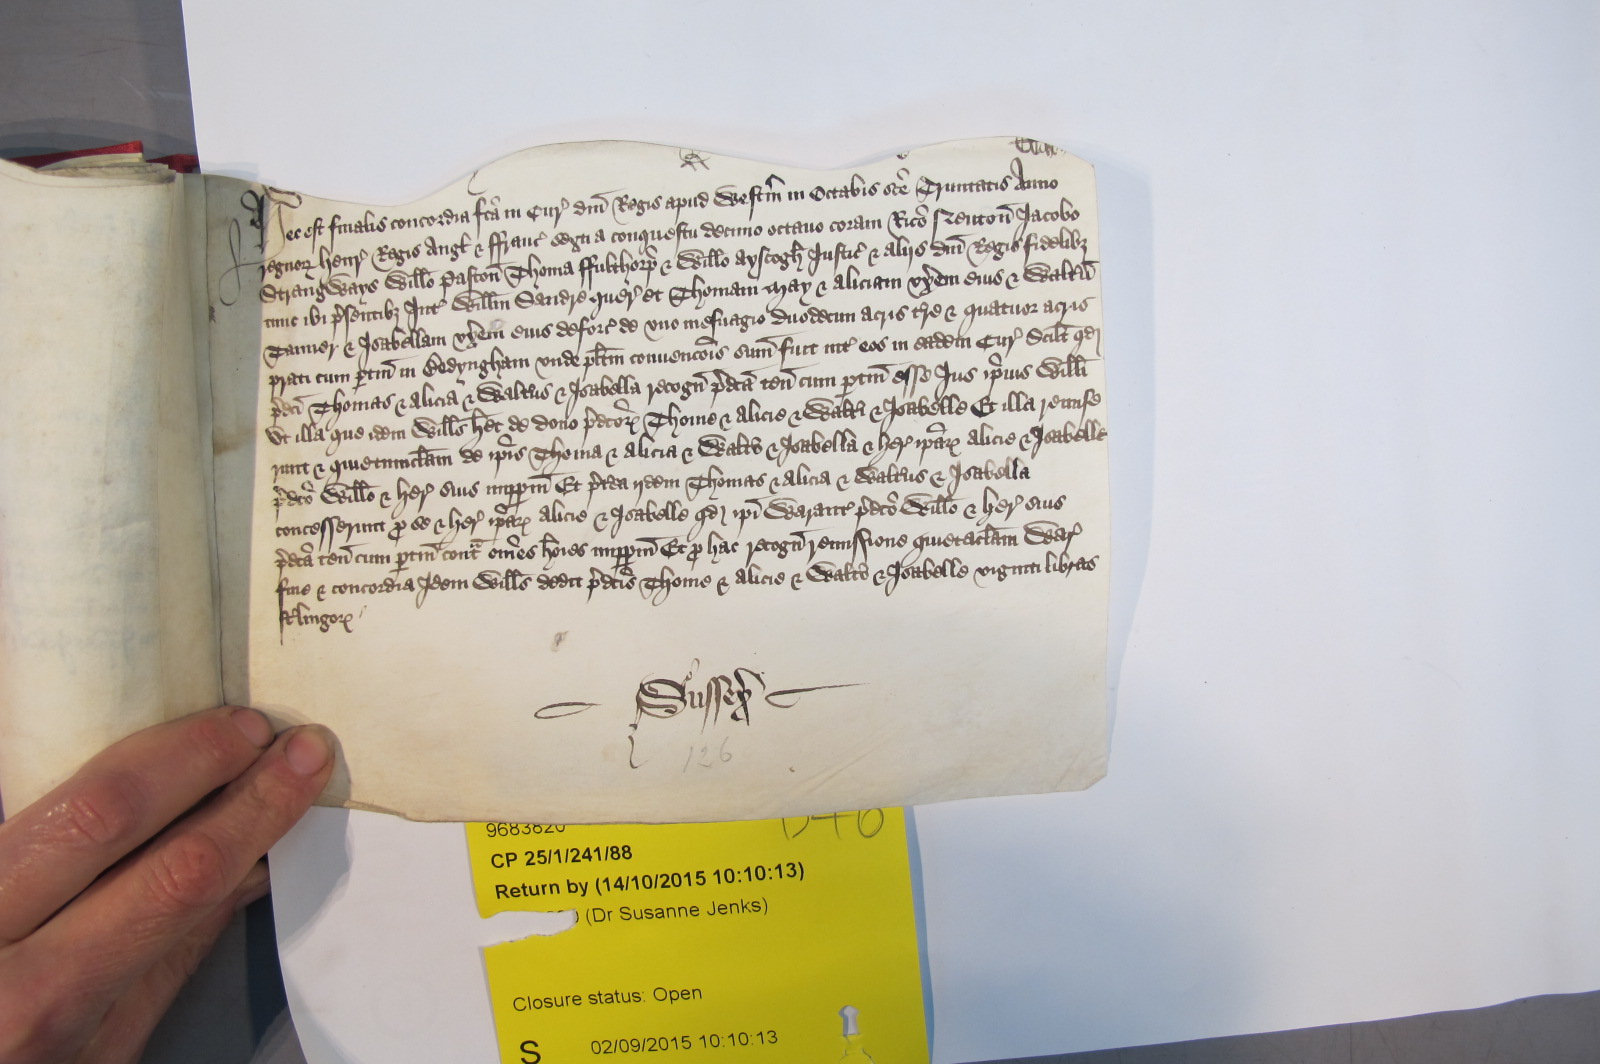 Hec est finalis concordia fcā in Cur' dnī Regis apud Westm̄ in Octabis sc̄e Trinitatis Anno
regnor' Henr' Regis Angl' & ffranc' sexti a conquestu decimo octavo coram Ric̄o Neuton̄ Jacobo
Strangways Will̄o Paston̄ Thoma ffulthorp̄ & Will̄o Ayscogh̄ Justic' & aliis dnī Regis fidelibȝ
tunc ibi p̄sentibȝ Int' Will̄m Sandre quer' et Thomam May & Aliciam vx̄em eius & Walt̄m
Tanner & Isabellam vx̄em eius deforc' de vno mesuagio duodecim acris t̄re & quatuor acris
prati cum ptin̄ in Bedyngham vnde pl̄itm convencōis sum̄ fuit int' eos in eadem Cur' Scil̄t qd'
p̄dc̄i Thomas & Alicia & Walt̄us & Isabella recogn̄ p̄dc̄a ten̄ cum ptin̄ esse Jus ip̄ius Will̄i
Vt illa que idem Will̄s h̄et de dono p̄dc̄or' Thome & Alicie & Walt̄i & Isabelle Et illa remise
runt & quietumclam̄ de ip̄is Thoma & Alicia & Walt̄o & Isabella & her' ip̄ar' Alicie & Isabelle
p̄dc̄o Will̄o & her' suis imppm̄ Et p̄t̄ea ijdem Thomas & Alicia & Walt̄us & Isabella
concesserunt p se & her' ip̄ar' Alicie & Isabelle qd' ip̄i Warant' p̄dc̄o Will̄o & her' suis
p̄dc̄a ten̄ cum ptin̄ cont̄ om̄es ho̅ies imppm̄ Et p hac recogn̄ remissione quietaclam̄ War'
fine & concordia Idem Will̄s dedit p̄dc̄is Thome & Alicie & Walt̄o & Isabelle viginti libras
st̄lingor'
Sussex'
126
9683820
CP 25/1/241/88
Return by (14/10/2015 10:10:13)
(Dr Susanne Jenks)
Closure status: Open
S 02/09/2015 10:10:13